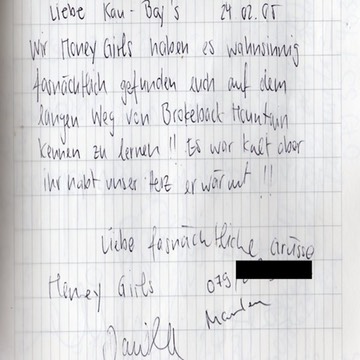 Liebe Kau-Boj's 24.02.05
Wir Honey Girls haben es wahnsinnig
fasnächtlich gefunden euch auf dem
langen Weg von Brokeback Mountain
kennen zu lernen!! Es war kalt aber
ihr habt unser Herz erwärmt!!
Liebe fasnächtliche Grüsse
Honey Girls 079/